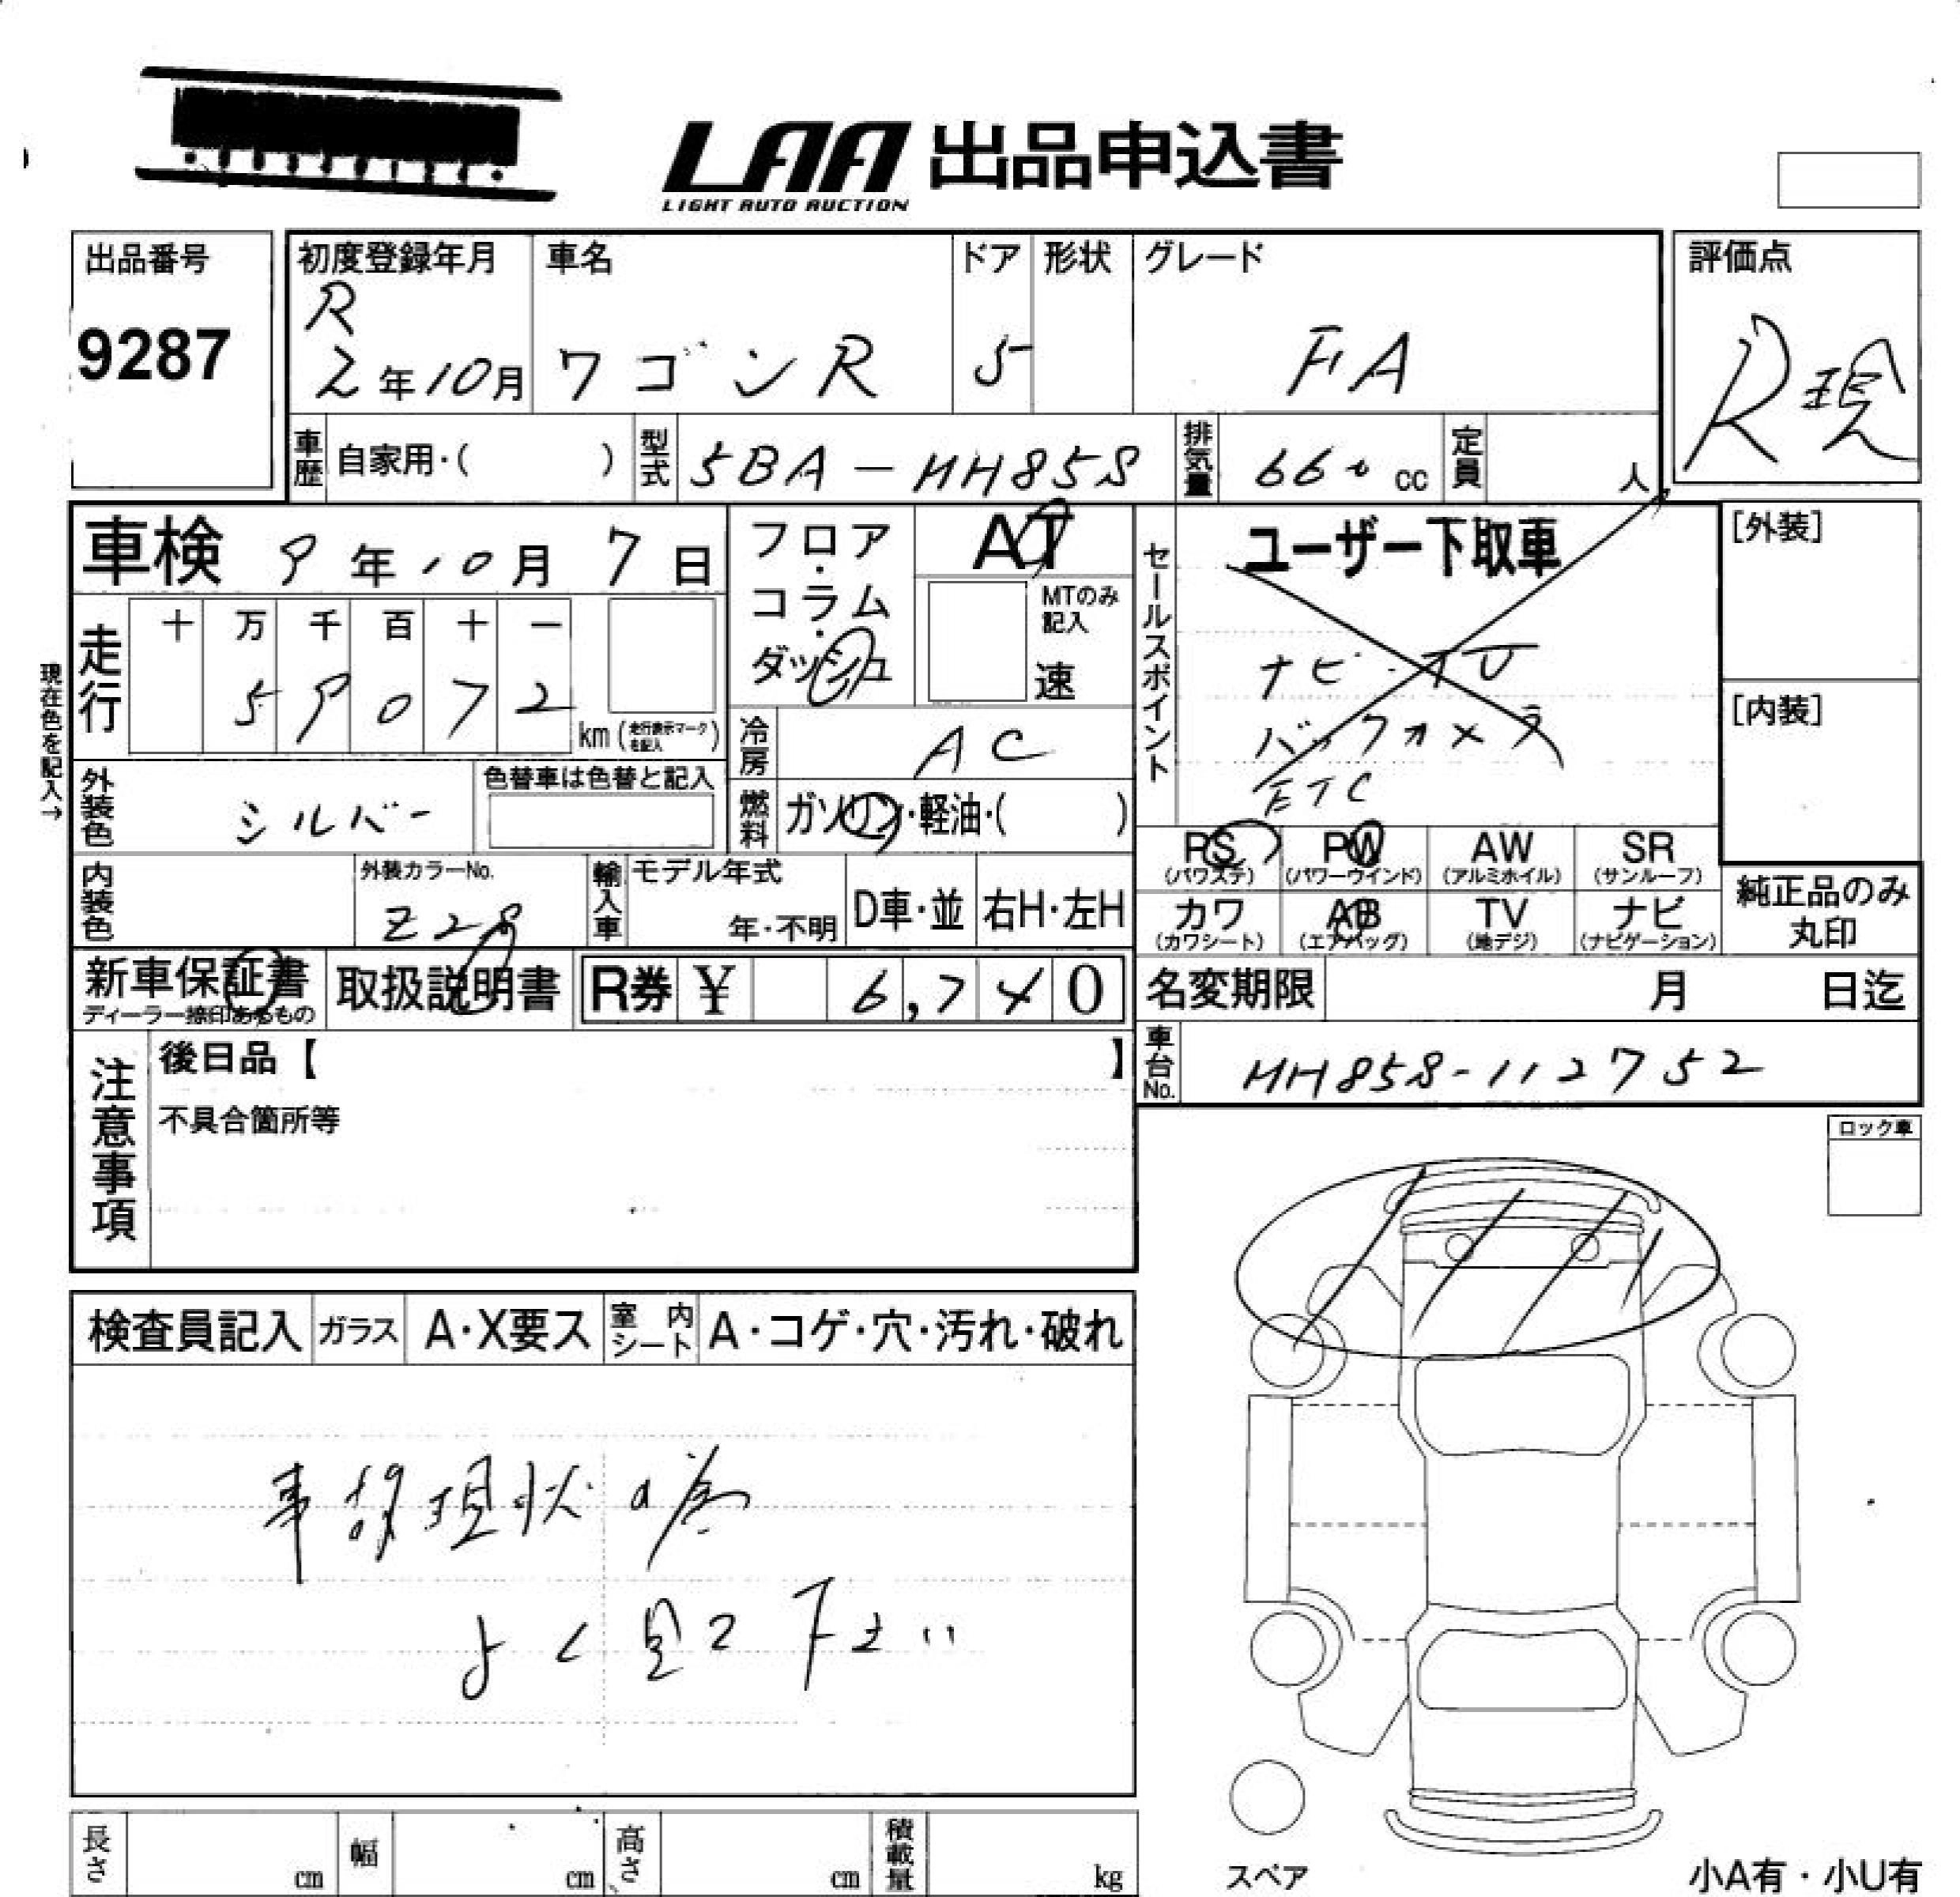 LAA 出品申込書
LIGHT AUTO AUCTION
出品番号
9287
初度登録年月
R
2年10月
車名
ワゴンR
ドア
5
形状
グレード
FA
評価点
R現
車歴 自家用・( )
型式 5BA-MH85S
排気量 660 cc
定員 人
車検 9年10月7日
走行 十 万 千 百 十 一
59072
km (走行表示マークを記入)
現在色を記入→
フロア・コラム・ダッシュ
AT
MTのみ記入
速
冷房 AC
燃料 ガソリン・軽油・( )
外装色 シルバー
色替車は色替と記入
内装色
外装カラーNo.
Z2S
輸入車 モデル年式
年・不明
D車・並
右H・左H
新車保証書
ディーラー捺印あるもの
取扱説明書
R券 ¥ 6,740
セールスポイント
ユーザー下取車
ナビ・TV
バックカメラ
ETC
[外装]
[内装]
PS (パワステ)
PW (パワーウインド)
AW (アルミホイル)
SR (サンルーフ)
カワ (カワシート)
AB (エアバッグ)
TV (地デジ)
ナビ (ナビゲーション)
純正品のみ
丸印
名変期限 月 日迄
車台No. MH85S-112752
注意事項
後日品【 】
不具合箇所等
ロック車
検査員記入
ガラス A・X要ス
室内シート A・コゲ・穴・汚れ・破れ
事故現状の為
よく見て下さい
長さ cm
幅 cm
高さ cm
積載量 kg
スペア
小A有・小U有